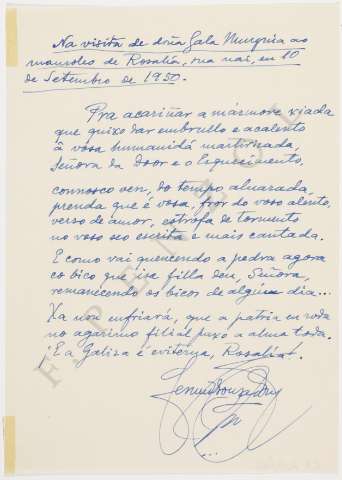 Na visita de doña Gala Murguia ao
mausoleo de Rosalía, sua nai, en 10
de Setembro de 1950.
Pra acariñar a mármore xiada
que quixo dar embrullo e acalento
â vosa humanidá martirizada,
Señora da Door e o Esquecimento,
connosco ven, do tempo alumada,
prenda que é vosa, fror do voso alento,
verso de amor, estrofa de tormento
no voso seo escrita e mais cantada.
E como vai quencendo a pedra agora
co bico que ise filla dou, Señora,
remanecendo os bicos de algún dia...
Xa non enfriará, que a patria en roda
no agarimo filial puxo a alma toda.
¡E a Galiza é eviterna, Rosalía!.
F. PENZOL